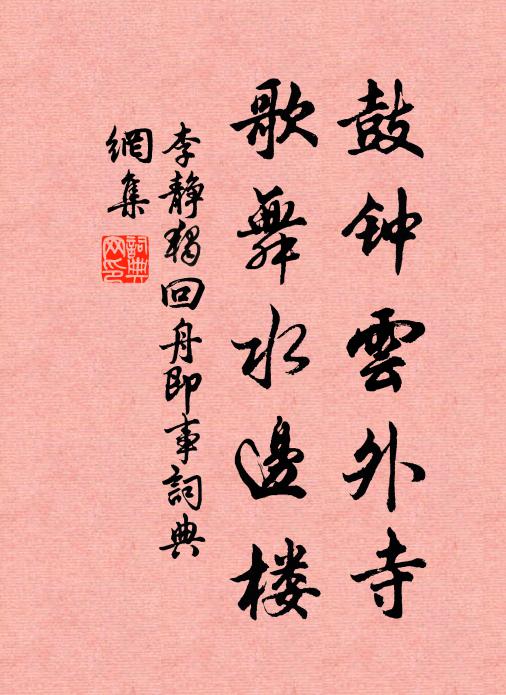 鼓钟雲外寺
歌舞水邊楼
李静獨回舟即事詞典
網集
詞典网印